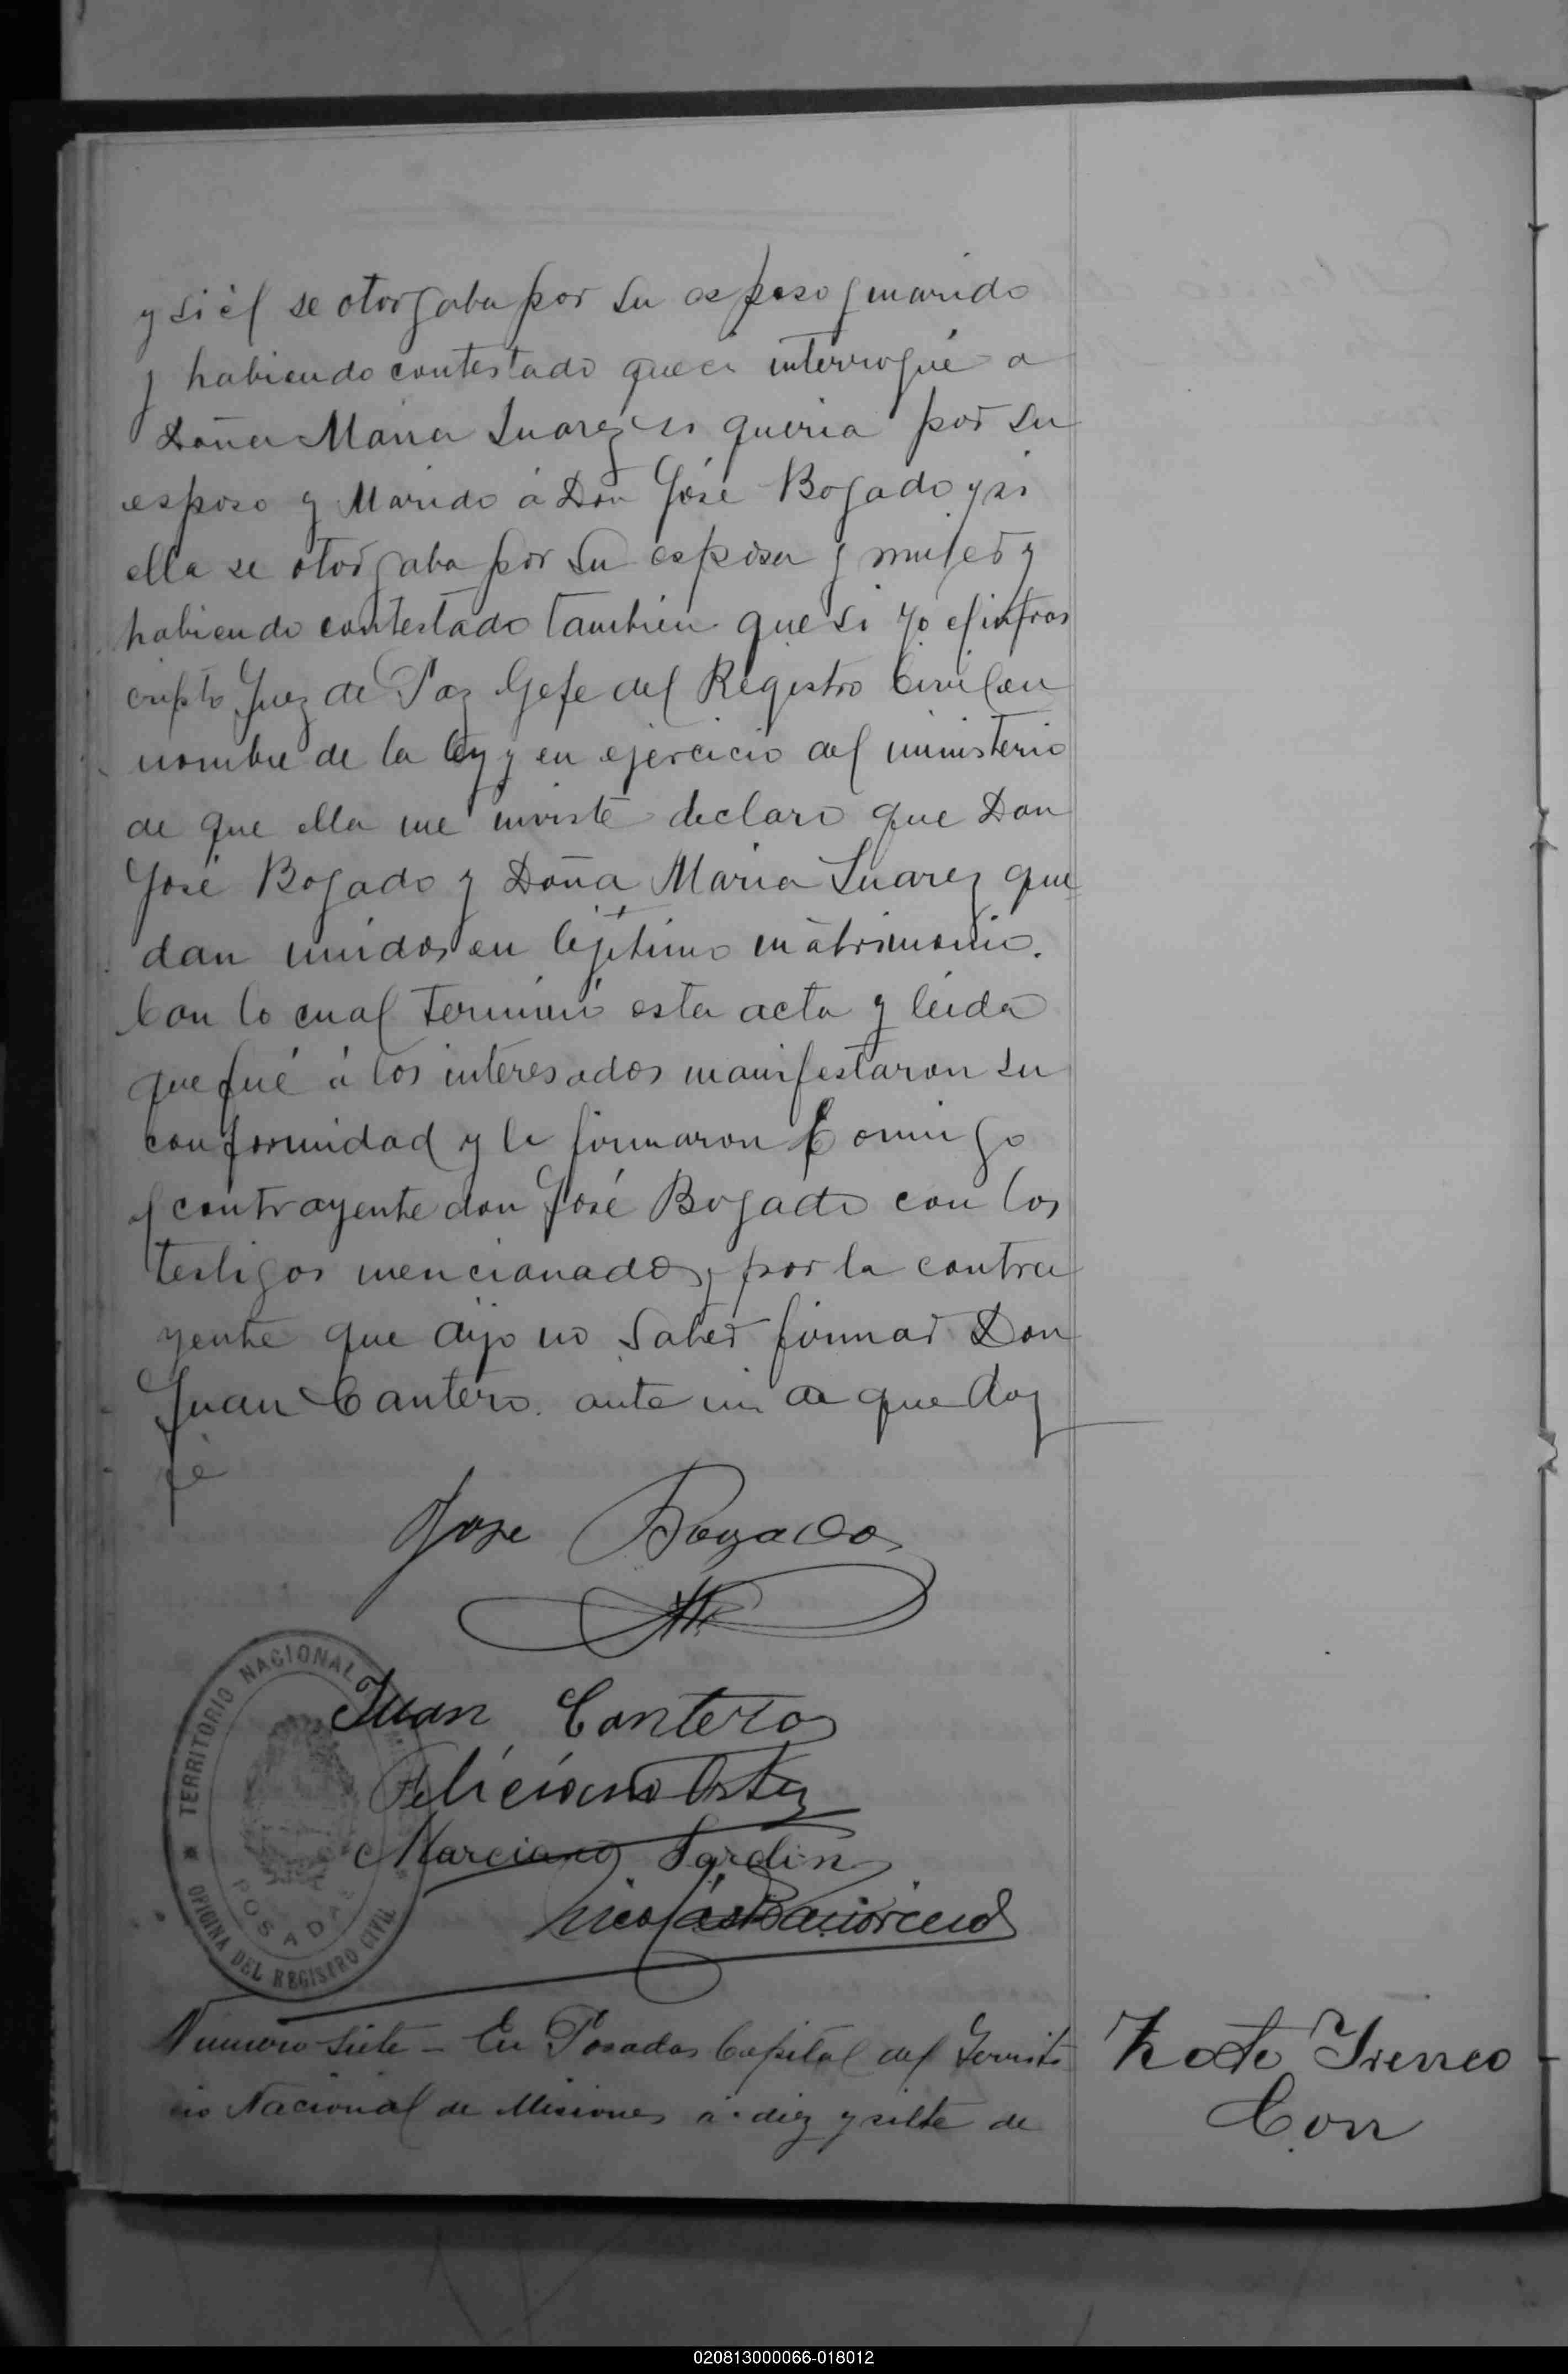 y si él se otorgaba por su esposo y marido
y habiendo contestado que si interrogué a
Doña Maria Suarez si queria por su
esposo y Marido á Don José Bogado y si
ella se otorgaba por su esposa y mujer y
habiendo contestado tambien que si yo el infras
cripto Juez de Paz Gefe del Registro Civil en
nombre de la ley y en ejercicio del ministerio
de que ella me inviste declaro que Don
José Bogado y Doña Maria Suarez que
dan unidos en lejitimo matrimonio.
Con lo cual terminó esta acta y leida
que fué á los interesados manifestaron su
conformidad y la firmaron Comnigo
el contrayente don José Bogado con los
testigos mencionados y por la contra
yente que dijo no saber firmar Don
Juan Cantero. ante mi de que doy
fé
Jose Bogado
Juan Cantero
Feliciano
Marciano Jardin
Nicolás
TERRITORIO NACIONAL
POSADAS
OFICINA DEL REGISTRO CIVIL
Numero siete - En Posadas Capital del Territo
rio Nacional de Misiones á diez y siete de
Ireneo
Con
020813000066-018012